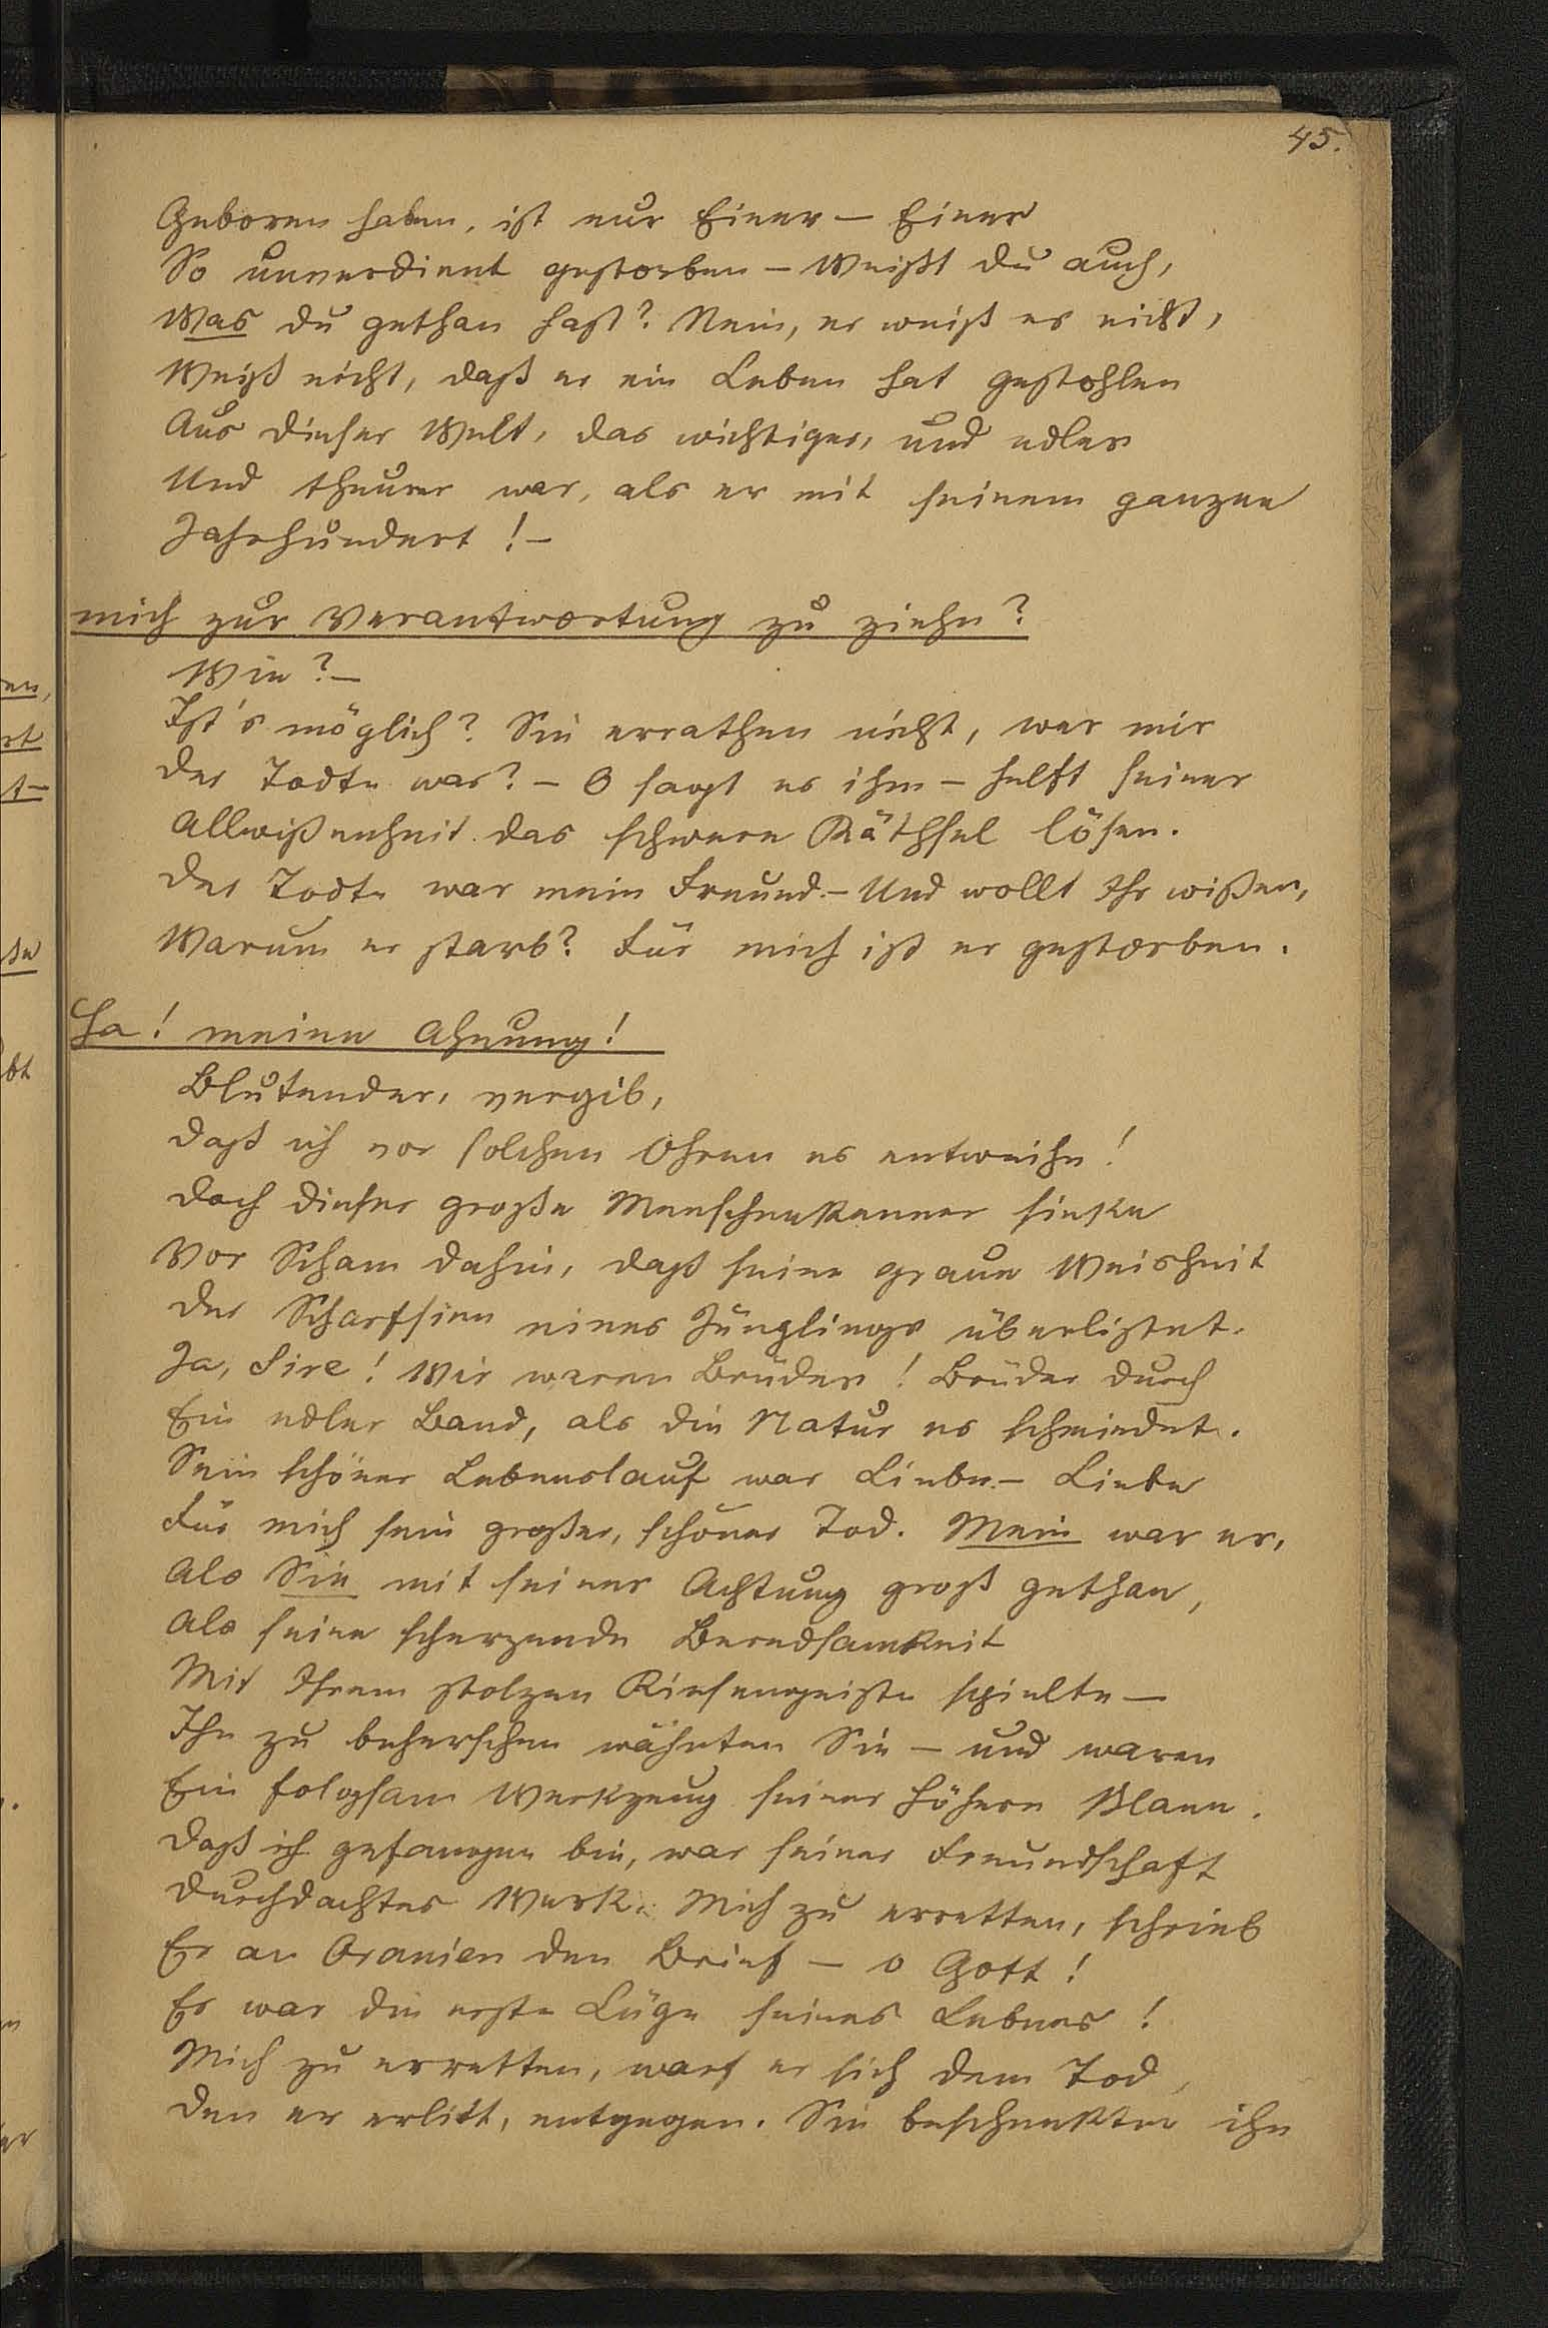 45.
Geboren haben, ist nur Einer — Einer
So unverdient gestorben — Weißt du auch,
Was du gethan hast? Nein, er weiß es nicht,
Weiß nicht, daß er ein Leben hat gestohlen
Aus dieser Welt, das wichtiger, und edler
Und theurer war, als er mit seinem ganzen
Jahrhundert! —
mich zur Verantwortung zu ziehn?
Wie? —
Ist's möglich? Sie errathen nicht, wer mir
Der Todte war? — O sagt es ihm — helft seiner
Allwißenheit das schwere Räthsel lösen.
Der Todte war mein Freund — Und wollt Ihr wißen,
Warum er starb? Für mich ist er gestorben.
Ha! meine Ahnung!
Blutender, vergib,
Daß ich vor solchen Ohren es entweihe!
Doch dieser große Menschenkenner sinke
Vor Scham dahin, daß seine graue Weisheit
Der Scharfsinn eines Jünglings überlistet.
Ja, Sire! Wir waren Brüder! Brüder durch
Ein edler Band, als die Natur es schmiedet.
Sein schöner Lebenslauf war Liebe — Liebe
Für mich sein großer, schöner Tod. Mein war er,
Als Sie mit seiner Achtung groß gethan,
Als seine scherzende Beredsamkeit
Mit Ihrem stolzen Riesengeiste spielte —
Ihn zu beherschen wähnten Sie — und waren
Ein folgsam Werkzeug seiner höhern Plane.
Daß ich gefangen bin, war seiner Freundschaft
Durchdachtes Werk. Mich zu erretten, schrieb
Er an Oranien den Brief — o Gott!
Es war die erste Lüge seines Lebens!
Mich zu erretten, warf er sich dem Tod,
Den er erlitt, entgegen. Sie beschenkten ihn